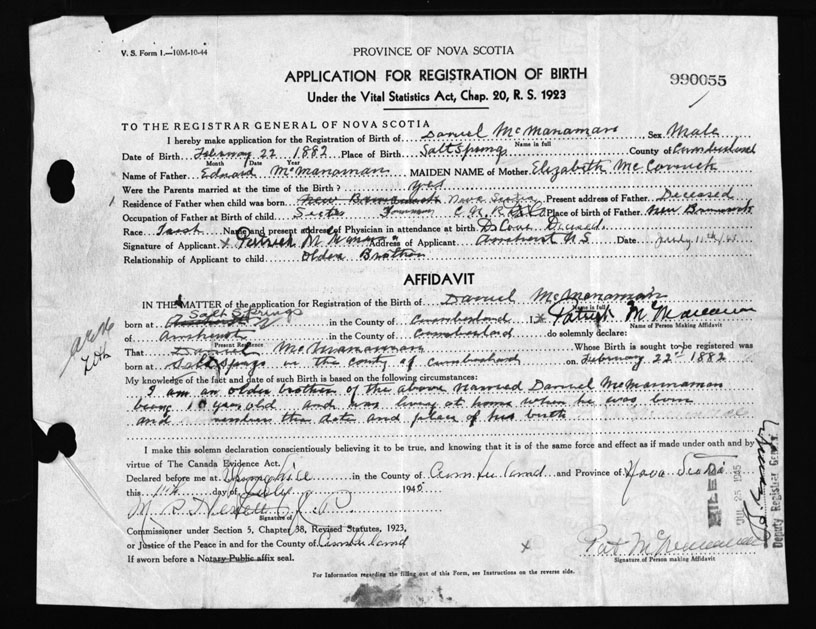 V. S. Form 1.—10M-10-44
PROVINCE OF NOVA SCOTIA
APPLICATION FOR REGISTRATION OF BIRTH
990055
Under the Vital Statistics Act, Chap. 20, R. S. 1923
TO THE REGISTRAR GENERAL OF NOVA SCOTIA
I hereby make application for the Registration of Birth of Daniel McManaman Sex Male
Name in full
Date of Birth February 22 1882 Place of Birth Salt Springs County of Cumberland
Month Date Year
Name of Father Edward McManaman MAIDEN NAME of Mother Elizabeth McCormick
Were the Parents married at the time of the Birth? yes
Residence of Father when child was born New Brunswick Nova Scotia Present address of Father Deceased
Occupation of Father at Birth of child C.N.R. Place of birth of Father New Brunswick
Race Name and present address of Physician in attendance at birth Deceased
Signature of Applicant x Patrick Address of Applicant Amherst N S Date July
Relationship of Applicant to child older Brother
AFFIDAVIT
IN THE MATTER of the application for Registration of the Birth of Daniel McManaman
Name in full
Salt Springs
born at in the County of Cumberland I, Patrick McManaman
Name of Person Making Affidavit
of Amherst in the County of Cumberland do solemnly declare:
Present Residence
That Daniel McManaman Whose Birth is sought to be registered was
born at Salt Springs in the county of Cumberland on February 22 1882
My knowledge of the fact and date of such Birth is based on the following circumstances:
I am an older brother of the above named Daniel McMannaman
being years old and was living at home when he was born
and the date and place of his birth
I make this solemn declaration conscientiously believing it to be true, and knowing that it is of the same force and effect as if made under oath and by
virtue of The Canada Evidence Act.
Declared before me at in the County of Cumberland and Province of Nova Scotia
this day of July 1945
Signature of J.P.
Commissioner under Section 5, Chapter 38, Revised Statutes, 1923,
or Justice of the Peace in and for the County of Cumberland
If sworn before a Notary Public affix seal.
x Pat McManaman
Signature of Person making Affidavit
For Information regarding the filling out of this Form, see Instructions on the reverse side.
FILED
JUL 25 1945
Deputy Registrar General